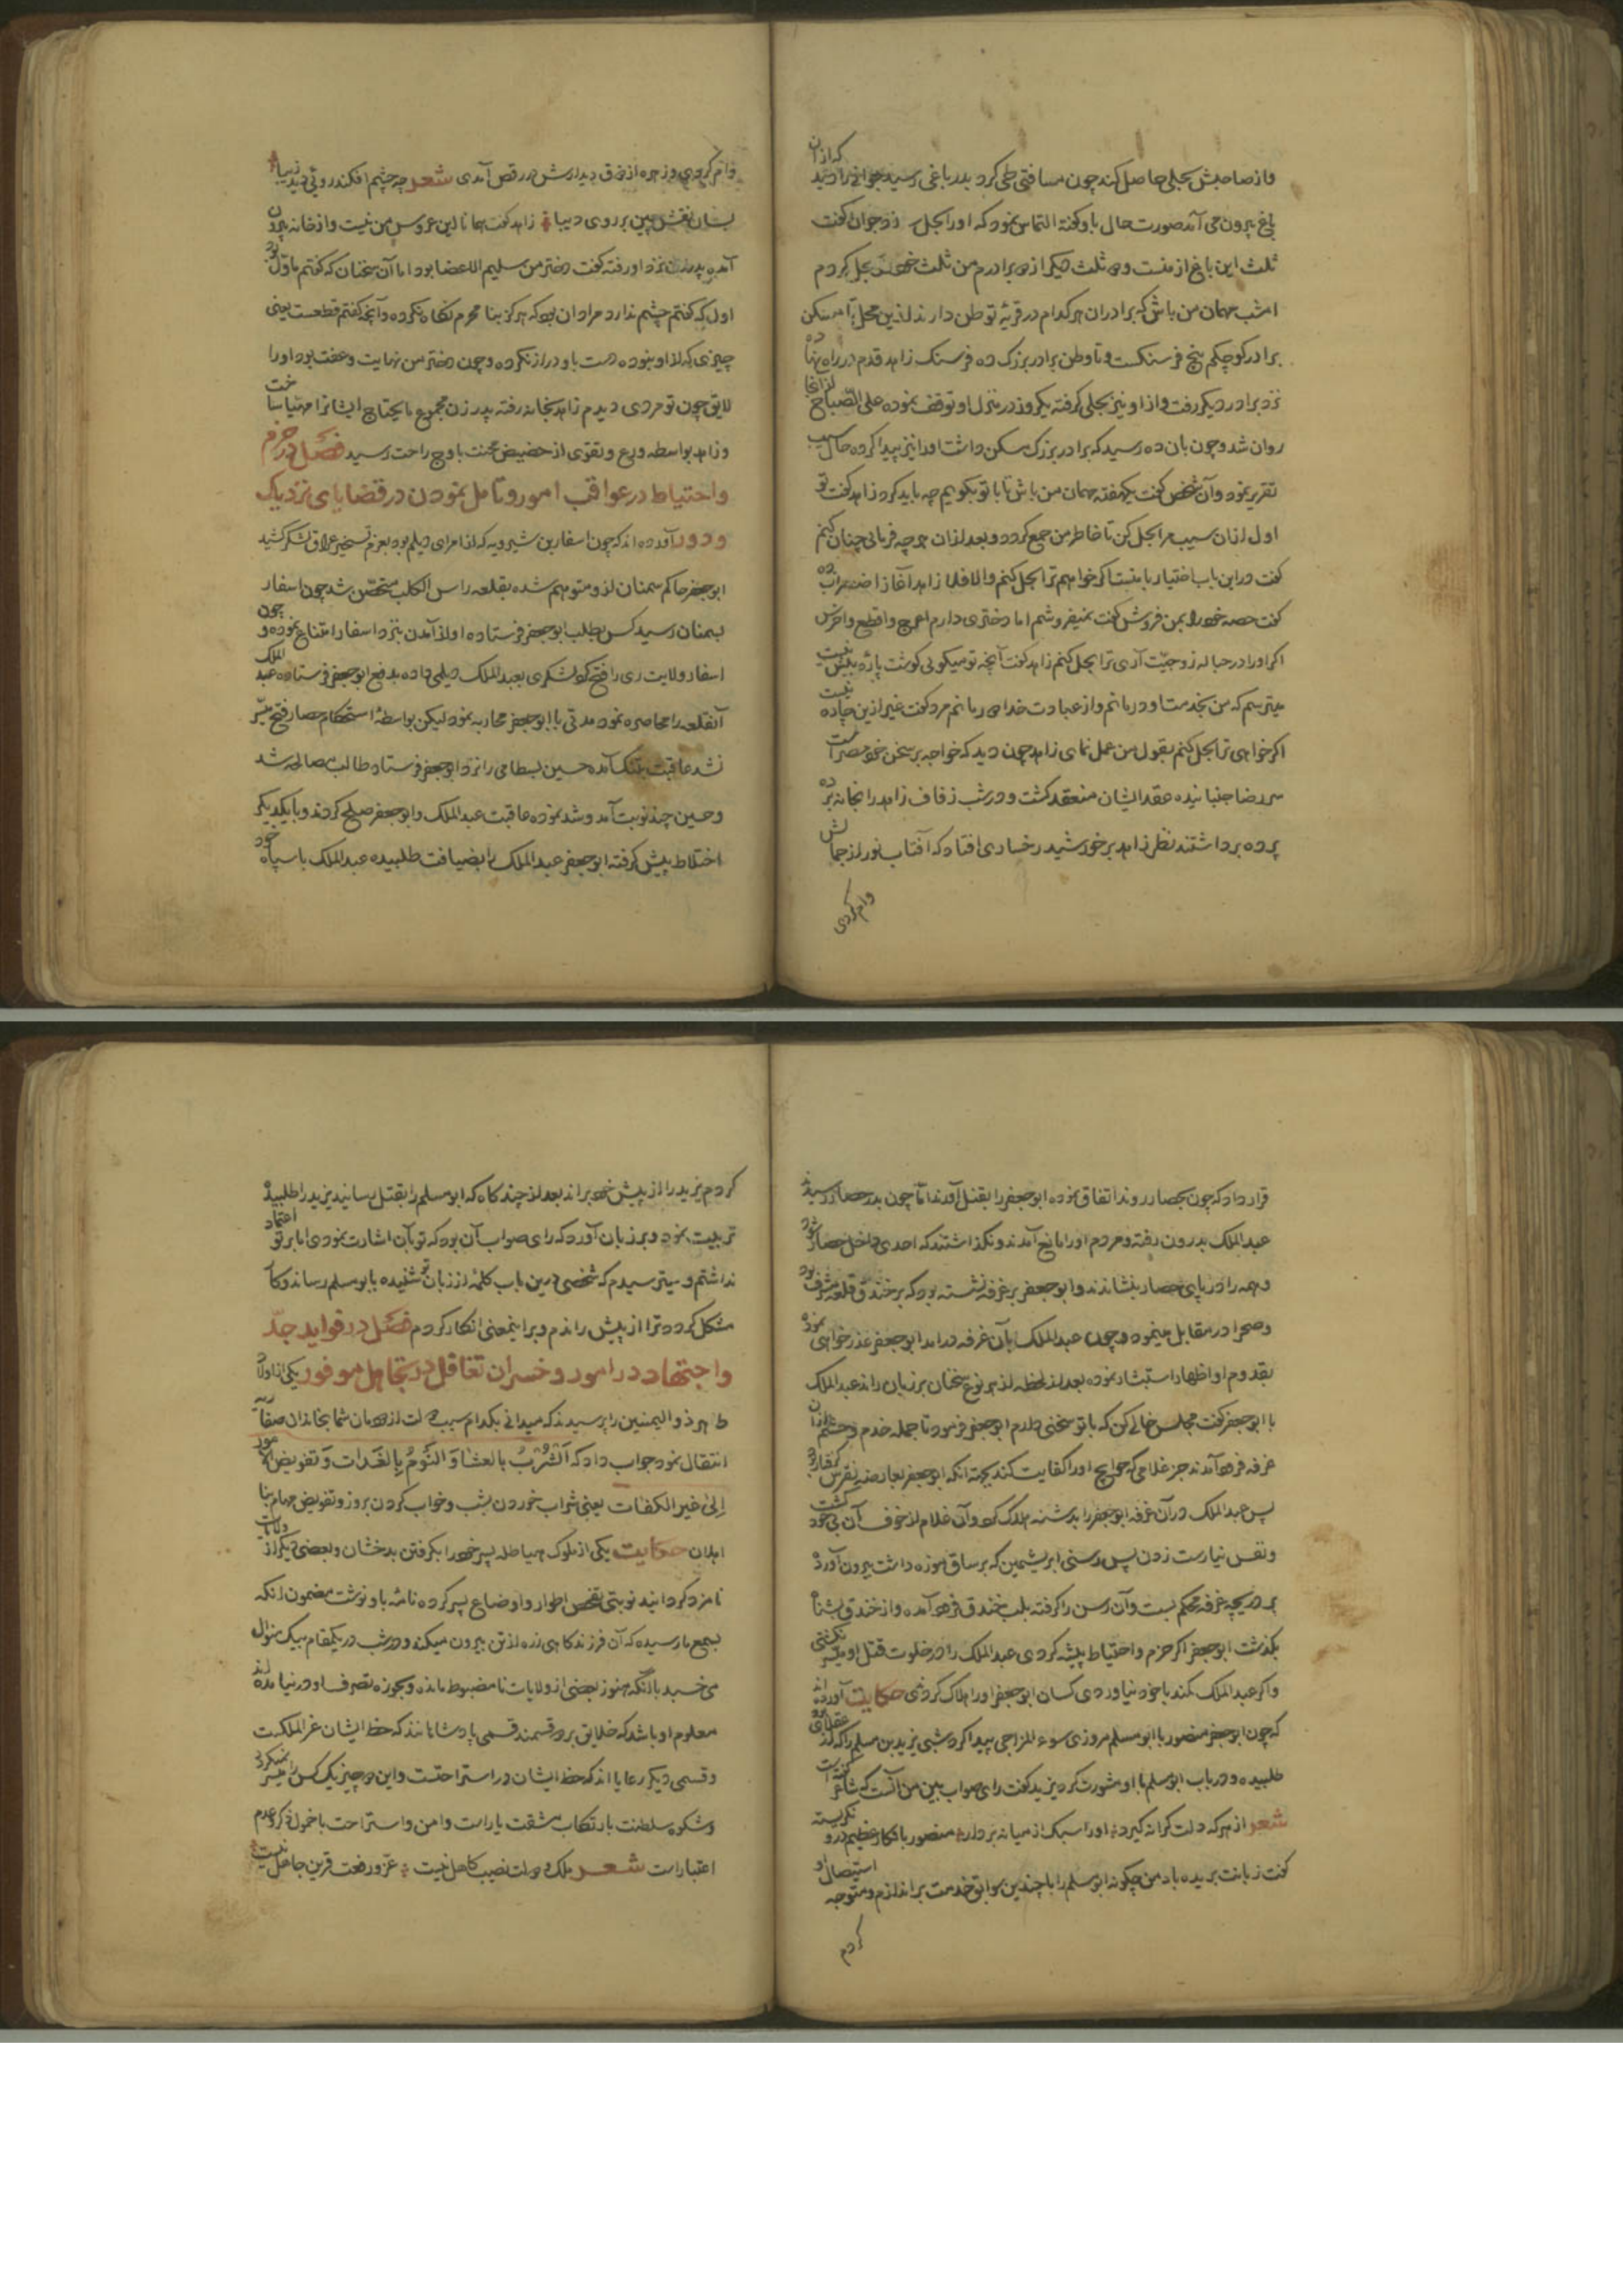 و از صاحبش بحلی حاصل کند چون مسافتی طی کرد بدر باغی رسید جوانی را دید که از آن
باغ بیرون می آمد صورت حال با و گفته التماس نمود که او را بحل جوان گفت
ثلث این باغ از منست و دو ثلث دیگر از دو برادرم من ثلث خود بحل کردم
امشب مهمان من باش که برادران هر کدام در قریهٔ توطن دارند از این محل تا مسکن
برادر کوچکم پنج فرسنگست و تا وطن برادر بزرگ ده فرسنگ زاهد قدم در راه نهاده
نزد برادر دیگر رفت و از او نیز بحلی گرفته یکروز در منزل او توقف نموده علی الصباح از آنجا
روان شد و چون بان ده رسید که برادر بزرگ مسکن داشت او را نیز پیدا کرده حال سیب
تقریر نمود و آن شخص گفت یکهفته مهمان من باش تا با تو بگویم چه باید کرد زاهد گفت تو
اول از ان سیب مرا بحل کن تا خاطر من جمع کردد و بعد از ان هر چه فرمائی چنان کنم
گفت در این باب اختیار با منست اگر خواهم ترا بحل کنم والا فلا زاهد آغاز اضطراب کرده
گفت حصه خود را بمن فروش گفت نمیفروشم اما دختری دارم اعرج و اقطع و اخرس
اگر او را در حباله زوجیت آری ترا بحل کنم زاهد گفت آنچه تو میگوئی گوشت پارهٔ بیش نیست
میترسم که من بخدمت او درمانم و از عبادت خدا می رمانم مرد گفت غیر ازین چاره نیست
اگر خواهی ترا بحل کنم بقول من عمل نمای زاهد چون دید که خواجه بر سخن خود مصر است
سر رضا جنبانیده عقد ایشان منعقد گشت و در شب زفاف زاهد را بخانه برده
پرده برداشتند نظر زاهد بر خورشید رخساری افتاد که آفتاب نور از جمالش
وام کردی
وام کردی و زهره از ذوق دیدارش در رقص آمدی شعر چه چشم افکند روئی دید زیبا
بسان نقش چین بر روی دیبا زاهد گفت همانا این عروس من نیست و از خانه بیرون
آمده پدر زن نزد او رفته گفت دختر من سلیم الاعضا بود اما آن سخنان که گفتم ماول بود
اول که گفتم چشم ندارد مراد ان بود که هرگز بنا محرم نگاه نکرده و آنچه گفتم قطعست یعنی
چیزی که از او نبوده دست باو دراز نکرده و چون دختر من نهایت و عفت بود او را
لایق چون تو مردی دیدم زاهد بخانه رفته پدر زن مجموع مایحتاج ایشانرا مهیا ساخت
و زاهد بواسطه ورع و تقوی از حضیض محنت باوج راحت رسید فصل در حزم
و احتیاط در عواقب امور و تامل نمودن در قضایای نزدیک
و دور آورده اند که چون اسفار بن شیرویه که از امرای دیلم بود بعزم تسخیر عراق لشکر کشید
ابوجعفر حاکم سمنان از و متوهم شده بقلعه راس الکلب متحصن شد چون اسفار
بسمنان رسید کس بطلب ابوجعفر فرستاده او از آمدن نزد اسفار امتناع نموده و چون
اسفار ولایت ری را فتح کرد لشکری بعبد الملک دیلمی داده بدفع ابوجعفر فرستاده عبد الملک
آنقلعه را محاصره نمود مدتی با ابوجعفر محاربه نمود لیکن بواسطه استحکام حصار فتح میسر
نشد عاقبت بتنگ آمده حسین بسطامی را نزد ابوجعفر فرستاد طالب مصالحه شد
و حسین چند نوبت آمد و شد نموده عاقبت عبد الملک و ابوجعفر صلح کردند و با یکدیگر
اختلاط پیش گرفته ابوجعفر عبد الملک را بضیافت طلبیده عبد الملک با سپاه خود
قرار داد که چون بحصار روند اتفاق نموده ابوجعفر را بقتل آورند اما چون بدر حصار رسیدند
عبد الملک بدرون رفته و مردم او را مانع آمدند و نگذاشتند که احدی داخل حصار شود
و همه را در پای حصار بنشاندند و ابوجعفر بر غرفه نشسته بود که بر خندق قلعه مشرف بود
و صحرا در مقابل مینمود و چون عبد الملک بآن غرفه در امد ابوجعفر عذر خواهی نموده
بقدوم او اظهار استبشار نموده بعد از لحظه از هر نوع سخنان بر زبان راند عبد الملک
با ابوجعفر گفت مجلس خالی کن که با تو سخنی دارم ابوجعفر فرمود تا جمله خدم و حشم از ان
غرفه فرود آمدند جز غلامی که حوایج او را کفایت کند بجهته انکه ابوجعفر بعارضه نقرس گرفتار بود
پس عبد الملک در آن غرفه ابوجعفر را بدشنه هلاک کرد و آن غلام از خوف آن بی خود گشت
و نفس نیارست زدن پس رسنی ابریشمین که بر ساق موزه داشت بیرون آورد
بر دریچه غرفه محکم بست و آن رسن را گرفته بلب خندق فرود آمده و از خندق بشناه
بگذشت ابوجعفر اگر حزم و احتیاط پیشه کردی عبد الملک را در خلوت قتل او میسر نگشتی
و اگر عبد الملک کمند با خود نیاوردی کسان ابوجعفر او را هلاک کردندی حکایت آورده اند
که چون ابوجعفر منصور با ابو مسلم مروزی سوء المزاجی پیدا کرد شبی یزید بن مسلم را که از عقلا بود
طلبیده و در باب ابو مسلم با او مشورت کرد یزید گفت رای صواب بین من آنست که شاعر گفته است
شعر از هر که دلت کرانه گیرد او را سبک از میانه بردار منصور بانکار عظیم در و نگریسته
گفت زبانت بریده باد من چگونه ابو مسلم را با چندین سوابق خدمت براندازم و متوجه استیصال او
کردم
کردم یزید را از پیش خود براند بعد از چند گاه که ابو مسلم را بقتل رسانید یزید را طلبیده
تربیت نمود و بر زبان آورد که رای صواب آن بود که تو بآن اشارت نمودی اما بر تو اعتماد
نداشتم و میترسیدم که شخصی درین باب کلمه از زبان تو شنیده بابو مسلم رساند و کار
مشکل کردد ترا از پیش راندم و بر اینمعنی انکار کردم فصل در فواید جد
و اجتهاد در امور و خسران تغافل در تجاهل موفور یکی از اولاد
طاهر ذو الیمینین را پرسیدند که میدانی بکدام سبب دولت از دودمان شما بخاندان صفاریه
انتقال نمود جواب داد که اَلشُّرْبُ بالعشا وَ النَّومُ بِالغَدات وَ تفویض الامور
اِلیٰ غیر الکفات یعنی شراب خوردن بشب و خواب کردن بروز و تفویض مهام بنا
اهلان حکایت یکی از ملوک هیاطله پسر خود را بگرفتن بدخشان و بعضی دیگر از ولایات
نامزد کردانید نوبتی تفحص اطوار و اوضاع پسر کرده نامه باو نوشت مضمون انکه
بسمع ما رسیده که آن فرزند گاهی زره از تن بیرون میکند و در شب در یکمقام بیک منوال
می خسبد با آنکه هنوز بعضی از ولایات نا مضبوط مانده و بحوزه تصرف او در نیامده اند
معلوم او باشد که خلایق بر دو قسمند قسمی پادشاهانند که حظ ایشان عز المملکت
و قسمی دیگر رعایا اند که حظ ایشان در استراحتست و این دو چیز یک کس را میسر نمیگردد
و شکوه سلطنت بارتکاب مشقت یار است و امن و استراحت با خمول ذکر و عدم
اعتبار است شعر ملک و دولت نصیب کاهل نیست عز و رفعت قرین جاهل نیست